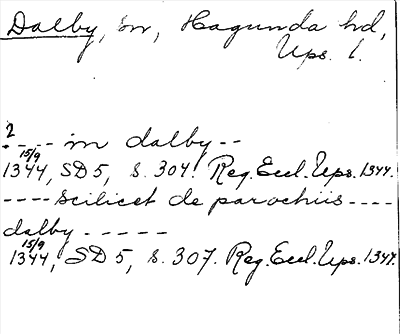 Dalby, sn, Hagunda hd,
Ups. l.
2
- - - - in dalby - -
15/9
1344, SD 5, s. 304! Reg. Eccl. Ups. 1344.
- - - - scilicet de parochiis - - - -
dalby - - - - -
15/9
1344, SD 5, s. 307. Reg. Eccl. Ups. 1344.